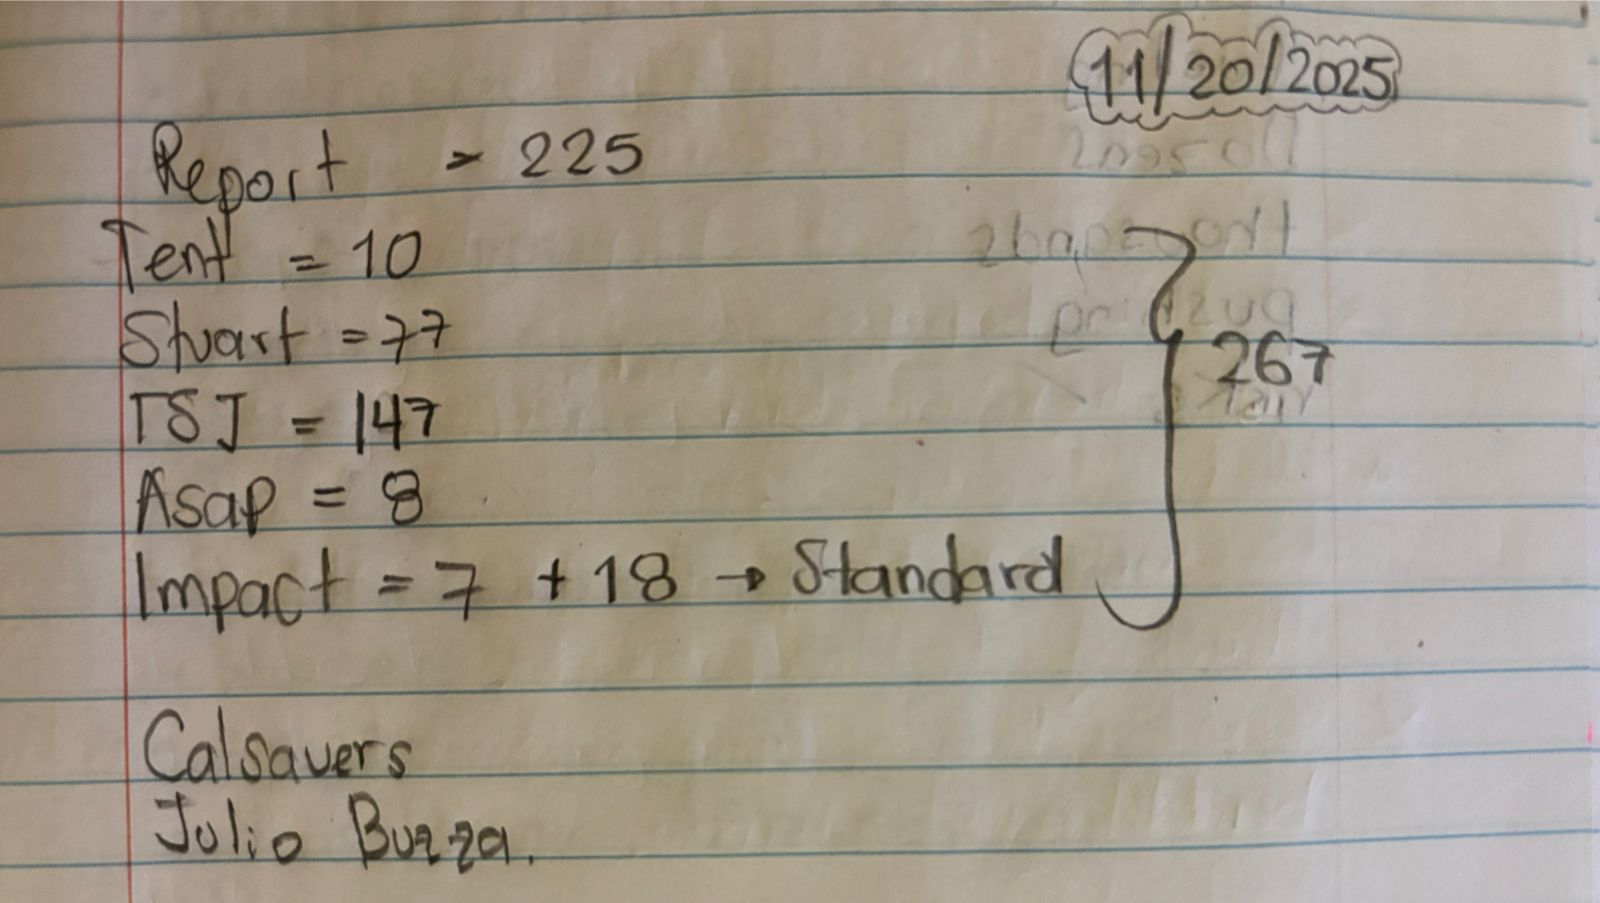 11/20/2025
Report = 225
Tent = 10
Stuart = 77
TSJ = 147
Asap = 8
Impact = 7 + 18 → Standard
267
Calsavers
Julio Buzza.